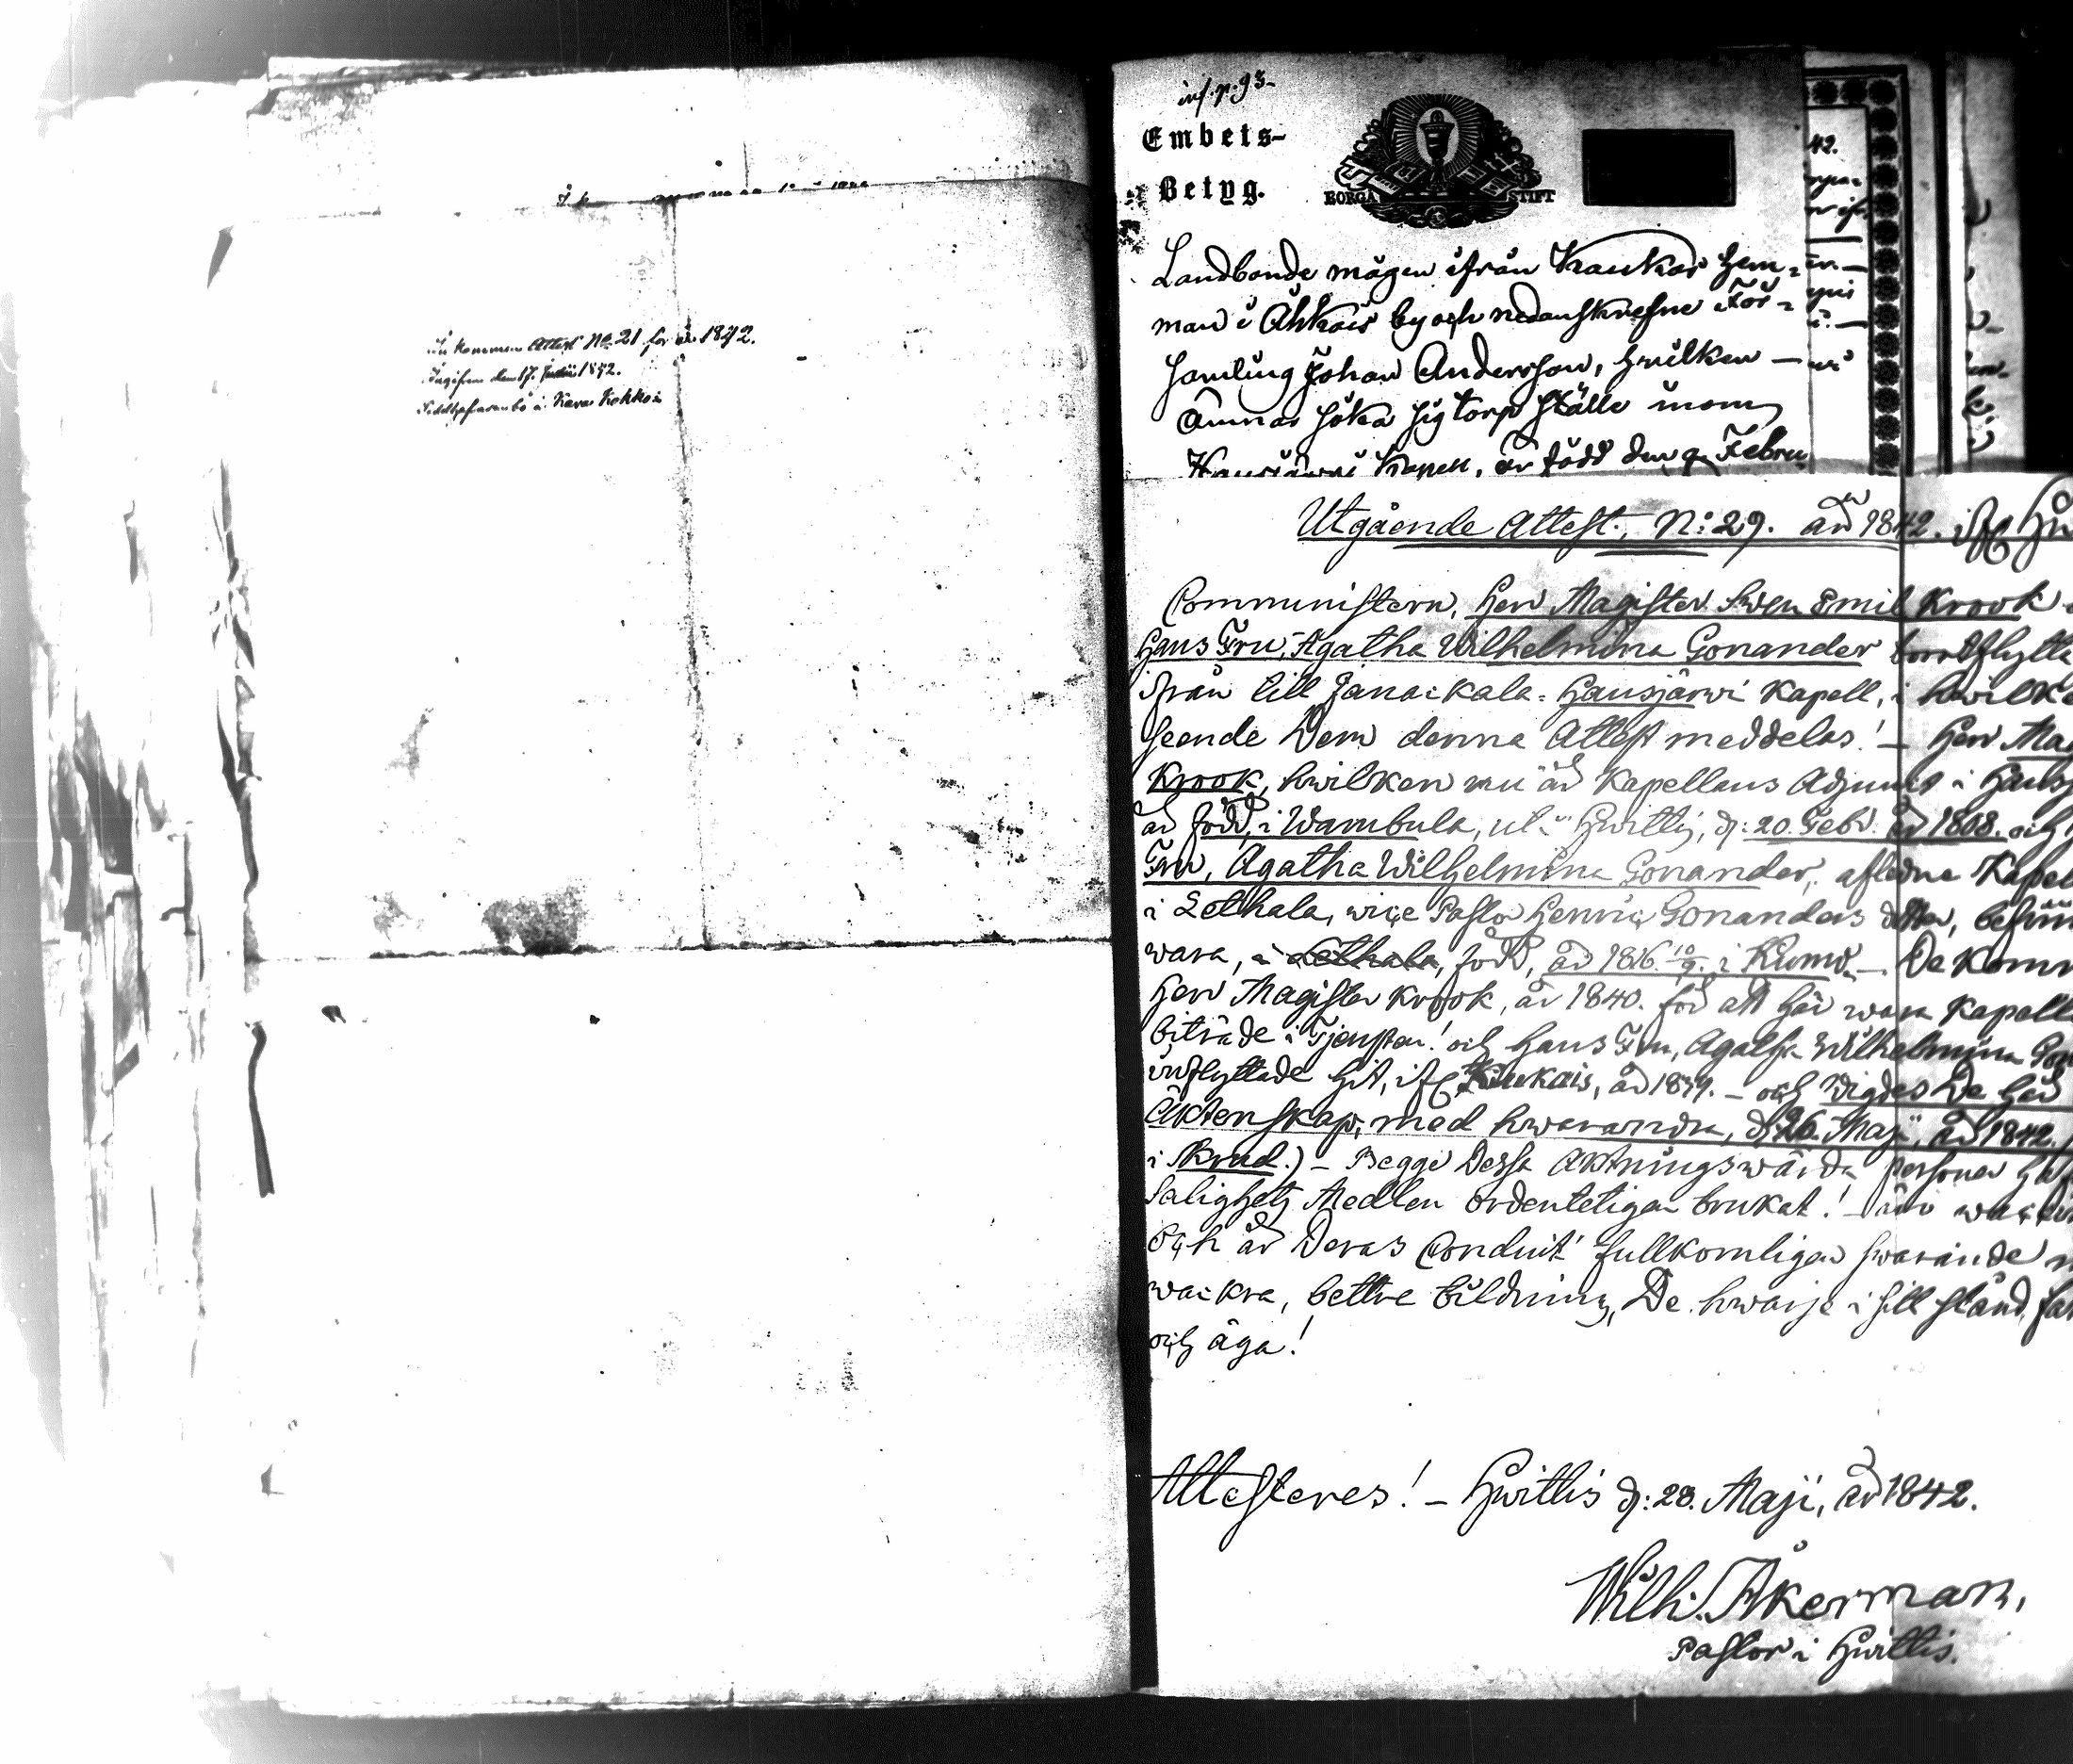 Inkommen Attest No 21 för år 1842.
Ingifven den 17. Junii 1842.
i Kara Kokkois
inf. p. 93.
Embets-
Betyg.
BORGÅ STIFT
Landbonde mågen ifrån Kaukas Hem-
man i Åhkois by och nedanskrefne För-
samling Johan Andersson, hvilken —
ämnar söka sig torp ställe inom
Hausjärvi Kapell, är född den 9 Febru
42.
Utgående Attest. N:o 29. år 1842. ifr
Communistern, Herr Magister Swen Emil Krook
Hans Fru, Agatha Wilhelmina Gonander bortflytta
ifrån till Janackala-Hausjärwi Kapell, i hwilke
seende Dem denna Attest meddelas! — Herr Mag
Krook, hwilken nu är Kapellans Adjunct i Hausj
är född, i Wambula, uti Hwittis, d: 20. Febr. år 1808. och
Fru, Agatha Wilhelmina Gonander, afledne Kapell
i Lethala, wice Pastor Henric Gonanders dotter, befin
wara, i Lethala, född, år 1816. 10/9. i Kumo. — De komm
Herr Magister Krook, år 1840. för att här wara Kapell
biträde i Tjensten! och Hans Fru, Agatha Wilhelmina Gon
inflyttade hit, ifr Kiukais, år 1839. — och wigdes De här
Äktenskap, med hwarandra, d. 26. Maji, år 1842.
i Skrud.) — Begge Dessa Aktningswärda personer haf
Salighets Medlen ordenteligen brukat! —
Och är Deras Conduit fullkomligen swarande
wackra, bettre bildning, De hwarje i sitt stånd,
och äga!
Attesteres! — Hwittis d: 28. Maji, år 1842.
Wilh. Åkerman,
Pastor i Hwittis.